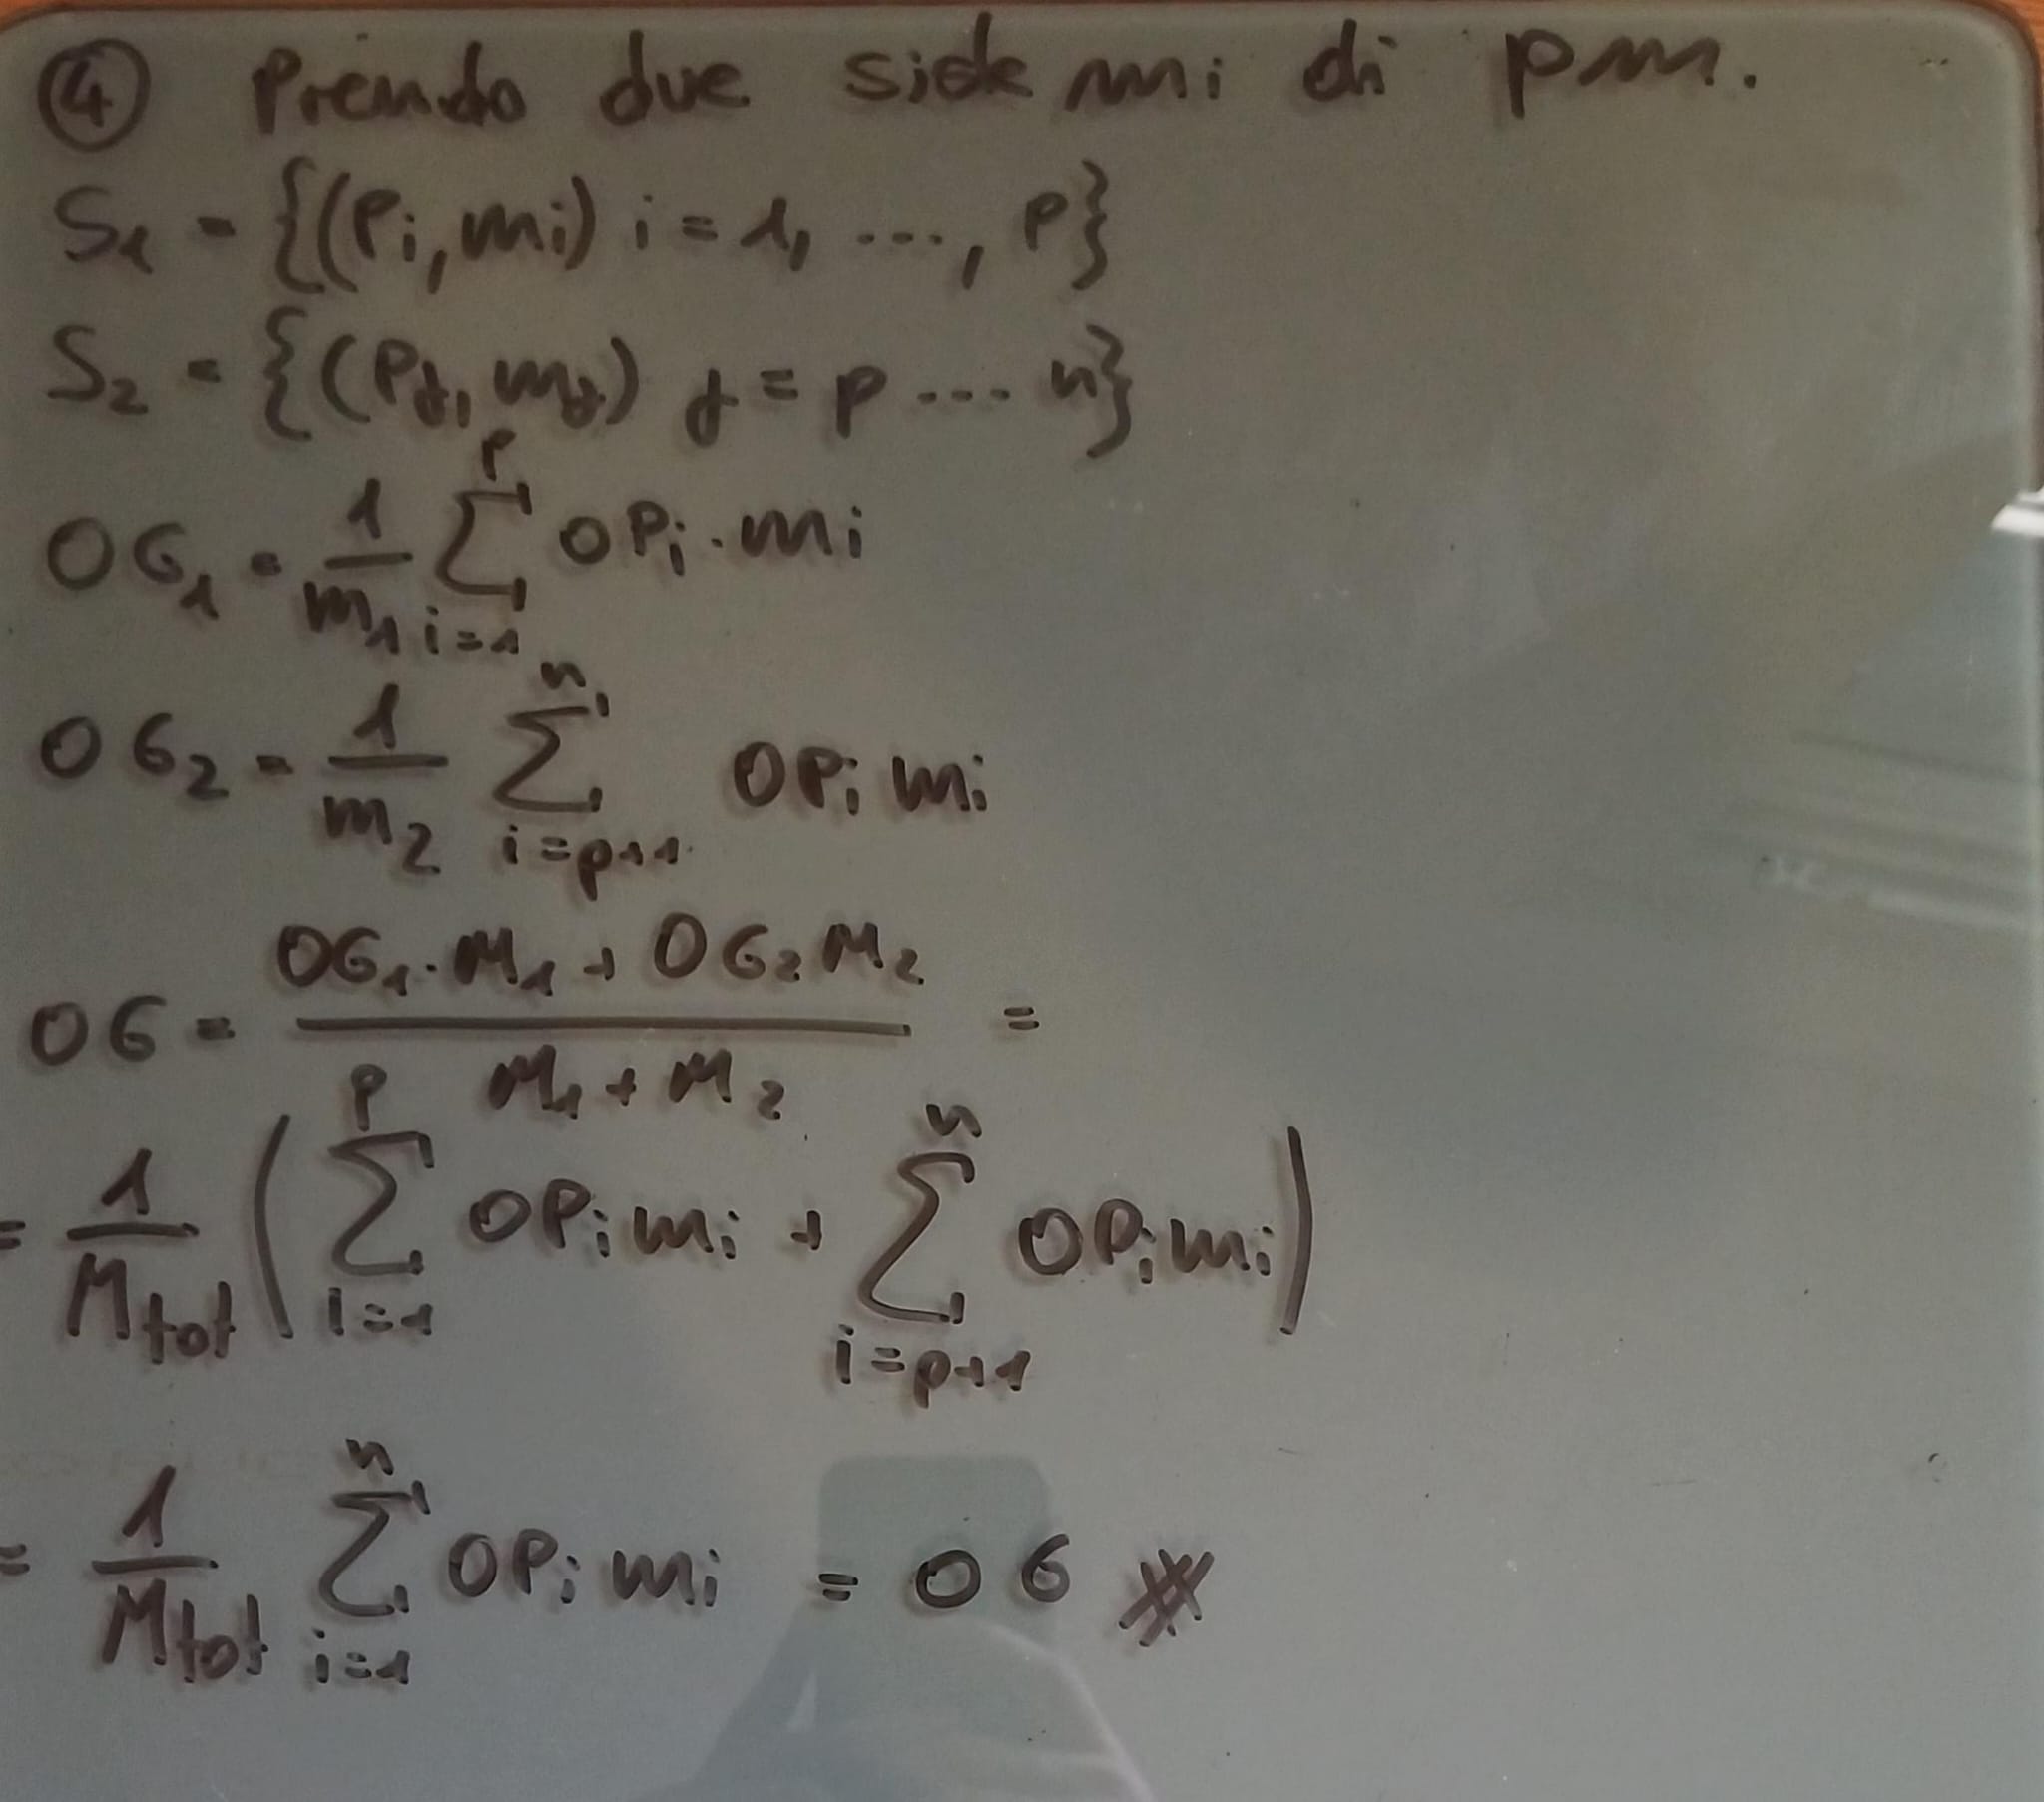 ④ Prendo due sistemi di pm.
S₁ = {(Pi, mi) i = 1, ..., p}
S₂ = {(Pj, mj) j = p ... n}
OG₁ = 1/m₁ ∑_{i=1}^{p} OPi · mi
OG₂ = 1/m₂ ∑_{i=p+1}^{n} OPi mi
OG = (OG₁ · M₁ + OG₂ M₂)/(M₁ + M₂) =
= 1/Mtot (∑_{i=1}^{p} OPi mi + ∑_{i=p+1}^{n} OPi mi)
= 1/Mtot ∑_{i=1}^{n} OPi mi = OG